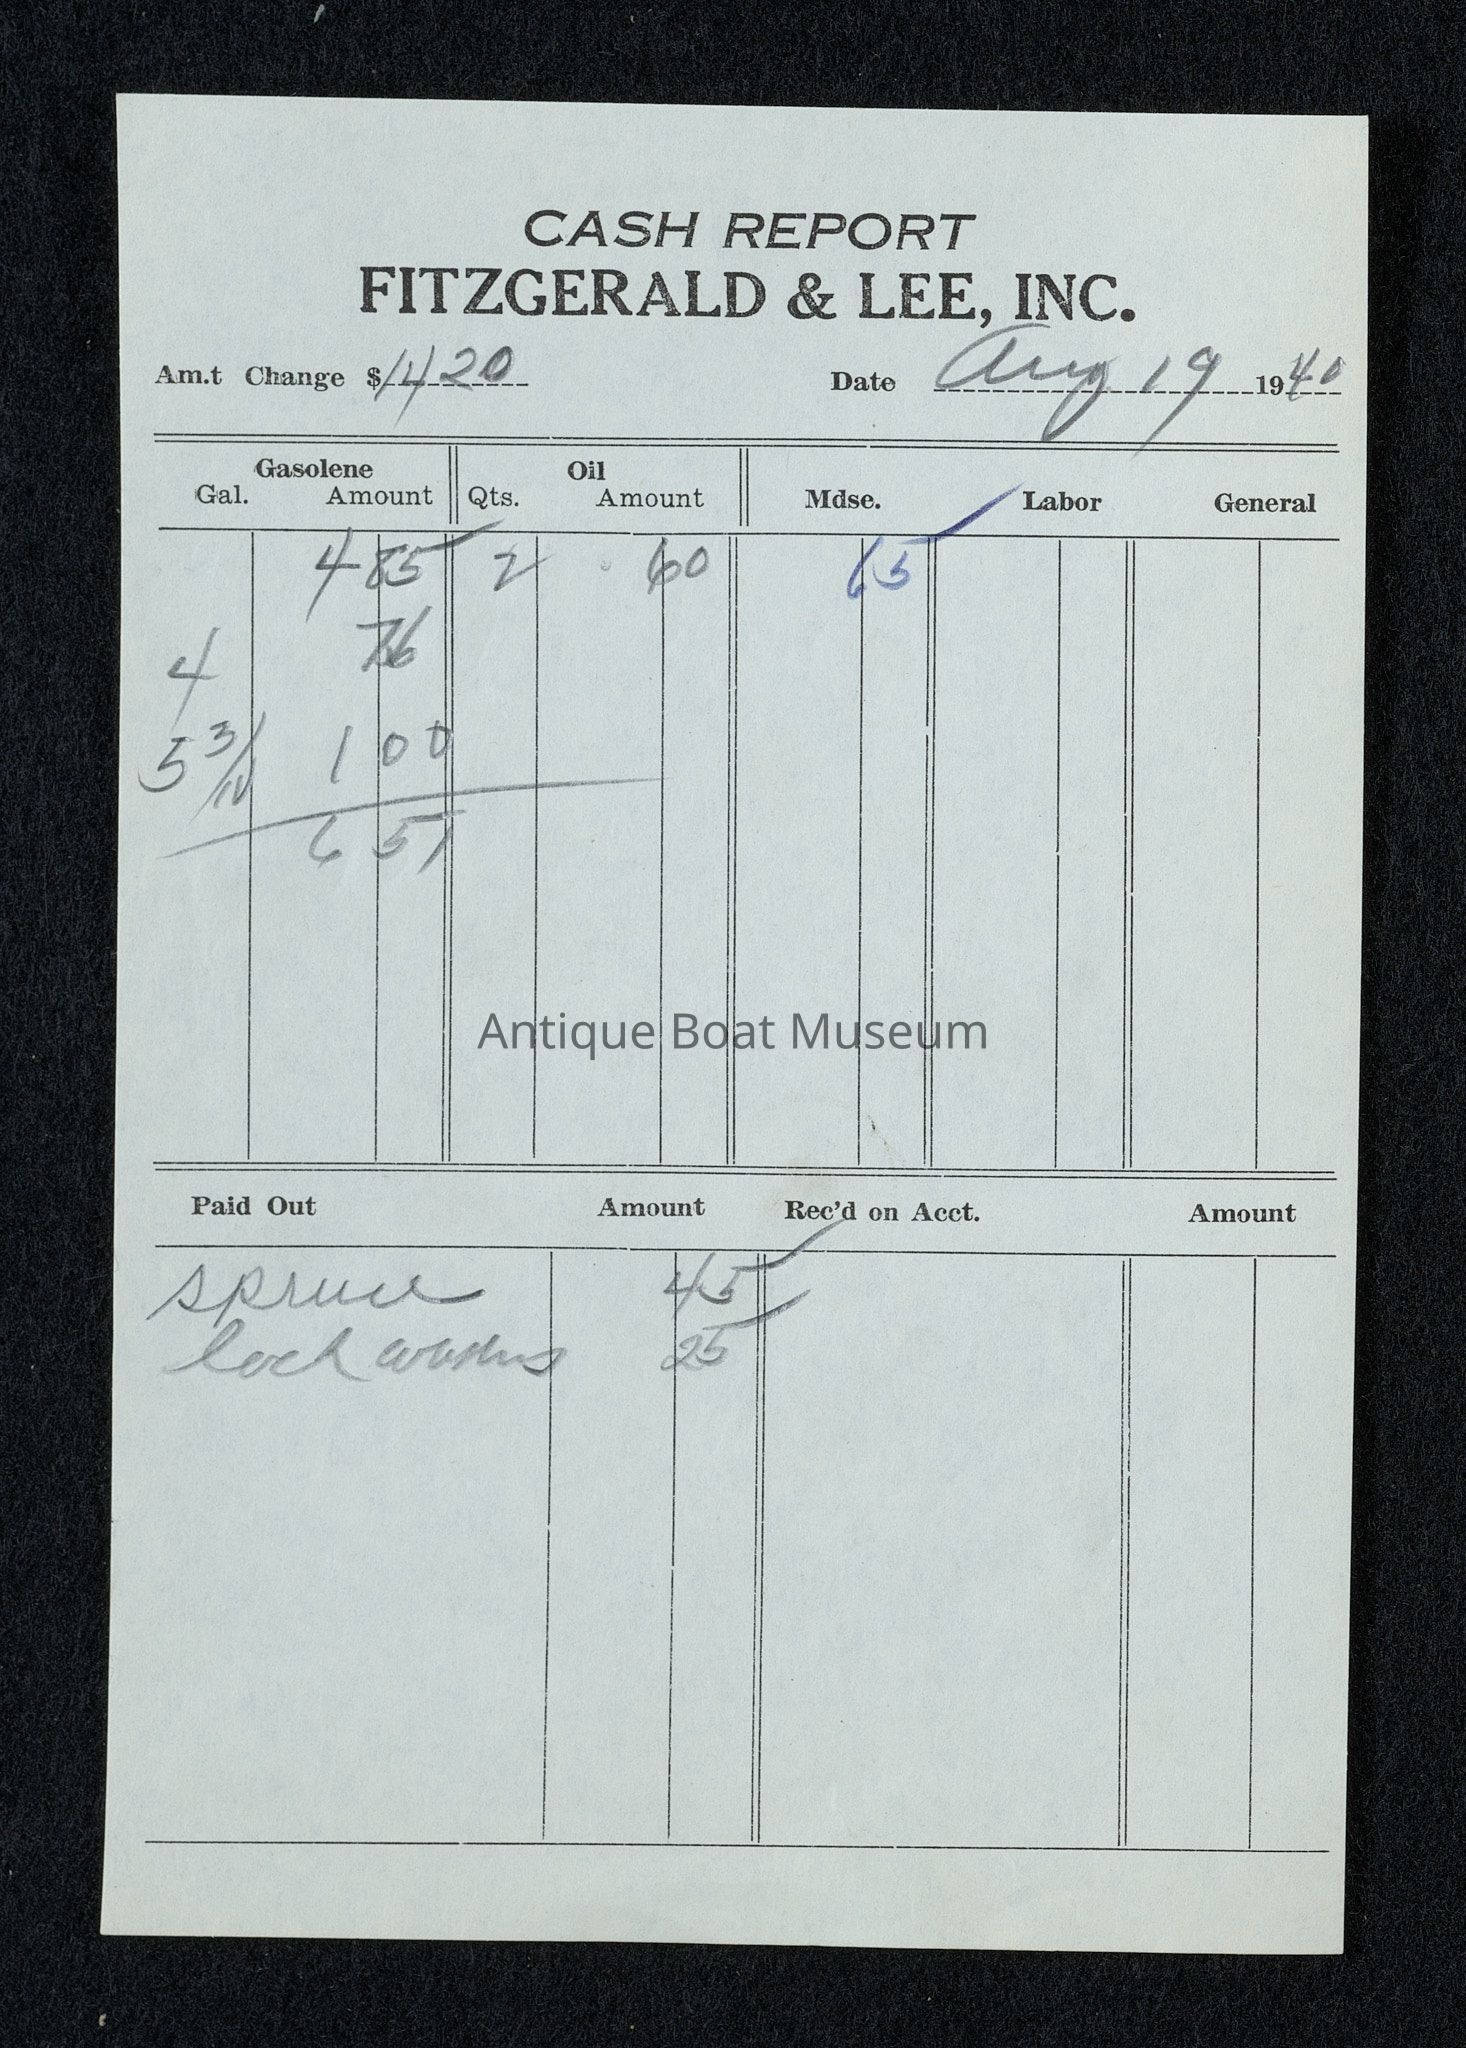 CASH REPORT
FITZGERALD & LEE, INC.
Am.t Change $ 14 20 Date Aug 19 1940
Gasolene Oil
Gal. Amount Qts. Amount Mdse. Labor General
4 85 2 60 65
4 76
5 3/10 1 00
6 51
Antique Boat Museum
Paid Out Amount Rec'd on Acct. Amount
spruce 45
lock washers 25